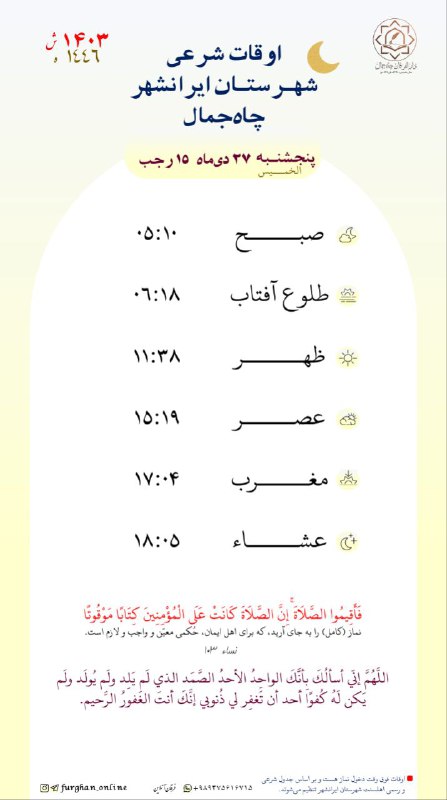 ۱۴۰۳ ش
۱۴۴۶ ه
اوقات شرعی
شهرستان ایرانشهر
چاه‌جمال
پنجشنبه ۲۷ دی‌ماه ۱۵ رجب
الخميس
صبح ۰۵:۱۰
طلوع آفتاب ۰۶:۱۸
ظهر ۱۱:۳۸
عصر ۱۵:۱۹
مغرب ۱۷:۰۴
عشاء ۱۸:۰۵
فَأَقِيمُوا الصَّلَاةَ ۚ إِنَّ الصَّلَاةَ كَانَتْ عَلَى الْمُؤْمِنِينَ كِتَابًا مَوْقُوتًا
نماز (کامل) را به جای آرید، که برای اهل ایمان، حُکمی معیّن و واجب و لازم است.
نساء ۱۰۳
اللَّهُمَّ إنّي أسألُكَ بأنَّكَ الواحِدُ الأحدُ الصَّمَد الذي لَم يَلِد ولَم يُولَد ولَم
يَكن لَهُ كُفوًا أحد أن تَغفِر لي ذُنوبي إنَّكَ أنتَ الغَفورُ الرَّحيم.
اوقات فوق وقت دخول نماز هست و بر اساس جدول شرعی
و رسمی اهلسنت شهرستان ایرانشهر تنظیم می‌شوند.
furghan_online
+۹۸۹۳۷۵۶۱۶۷۱۵
فرقان آنلاین